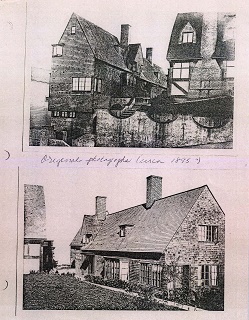 Original photographs (circa 1895?)